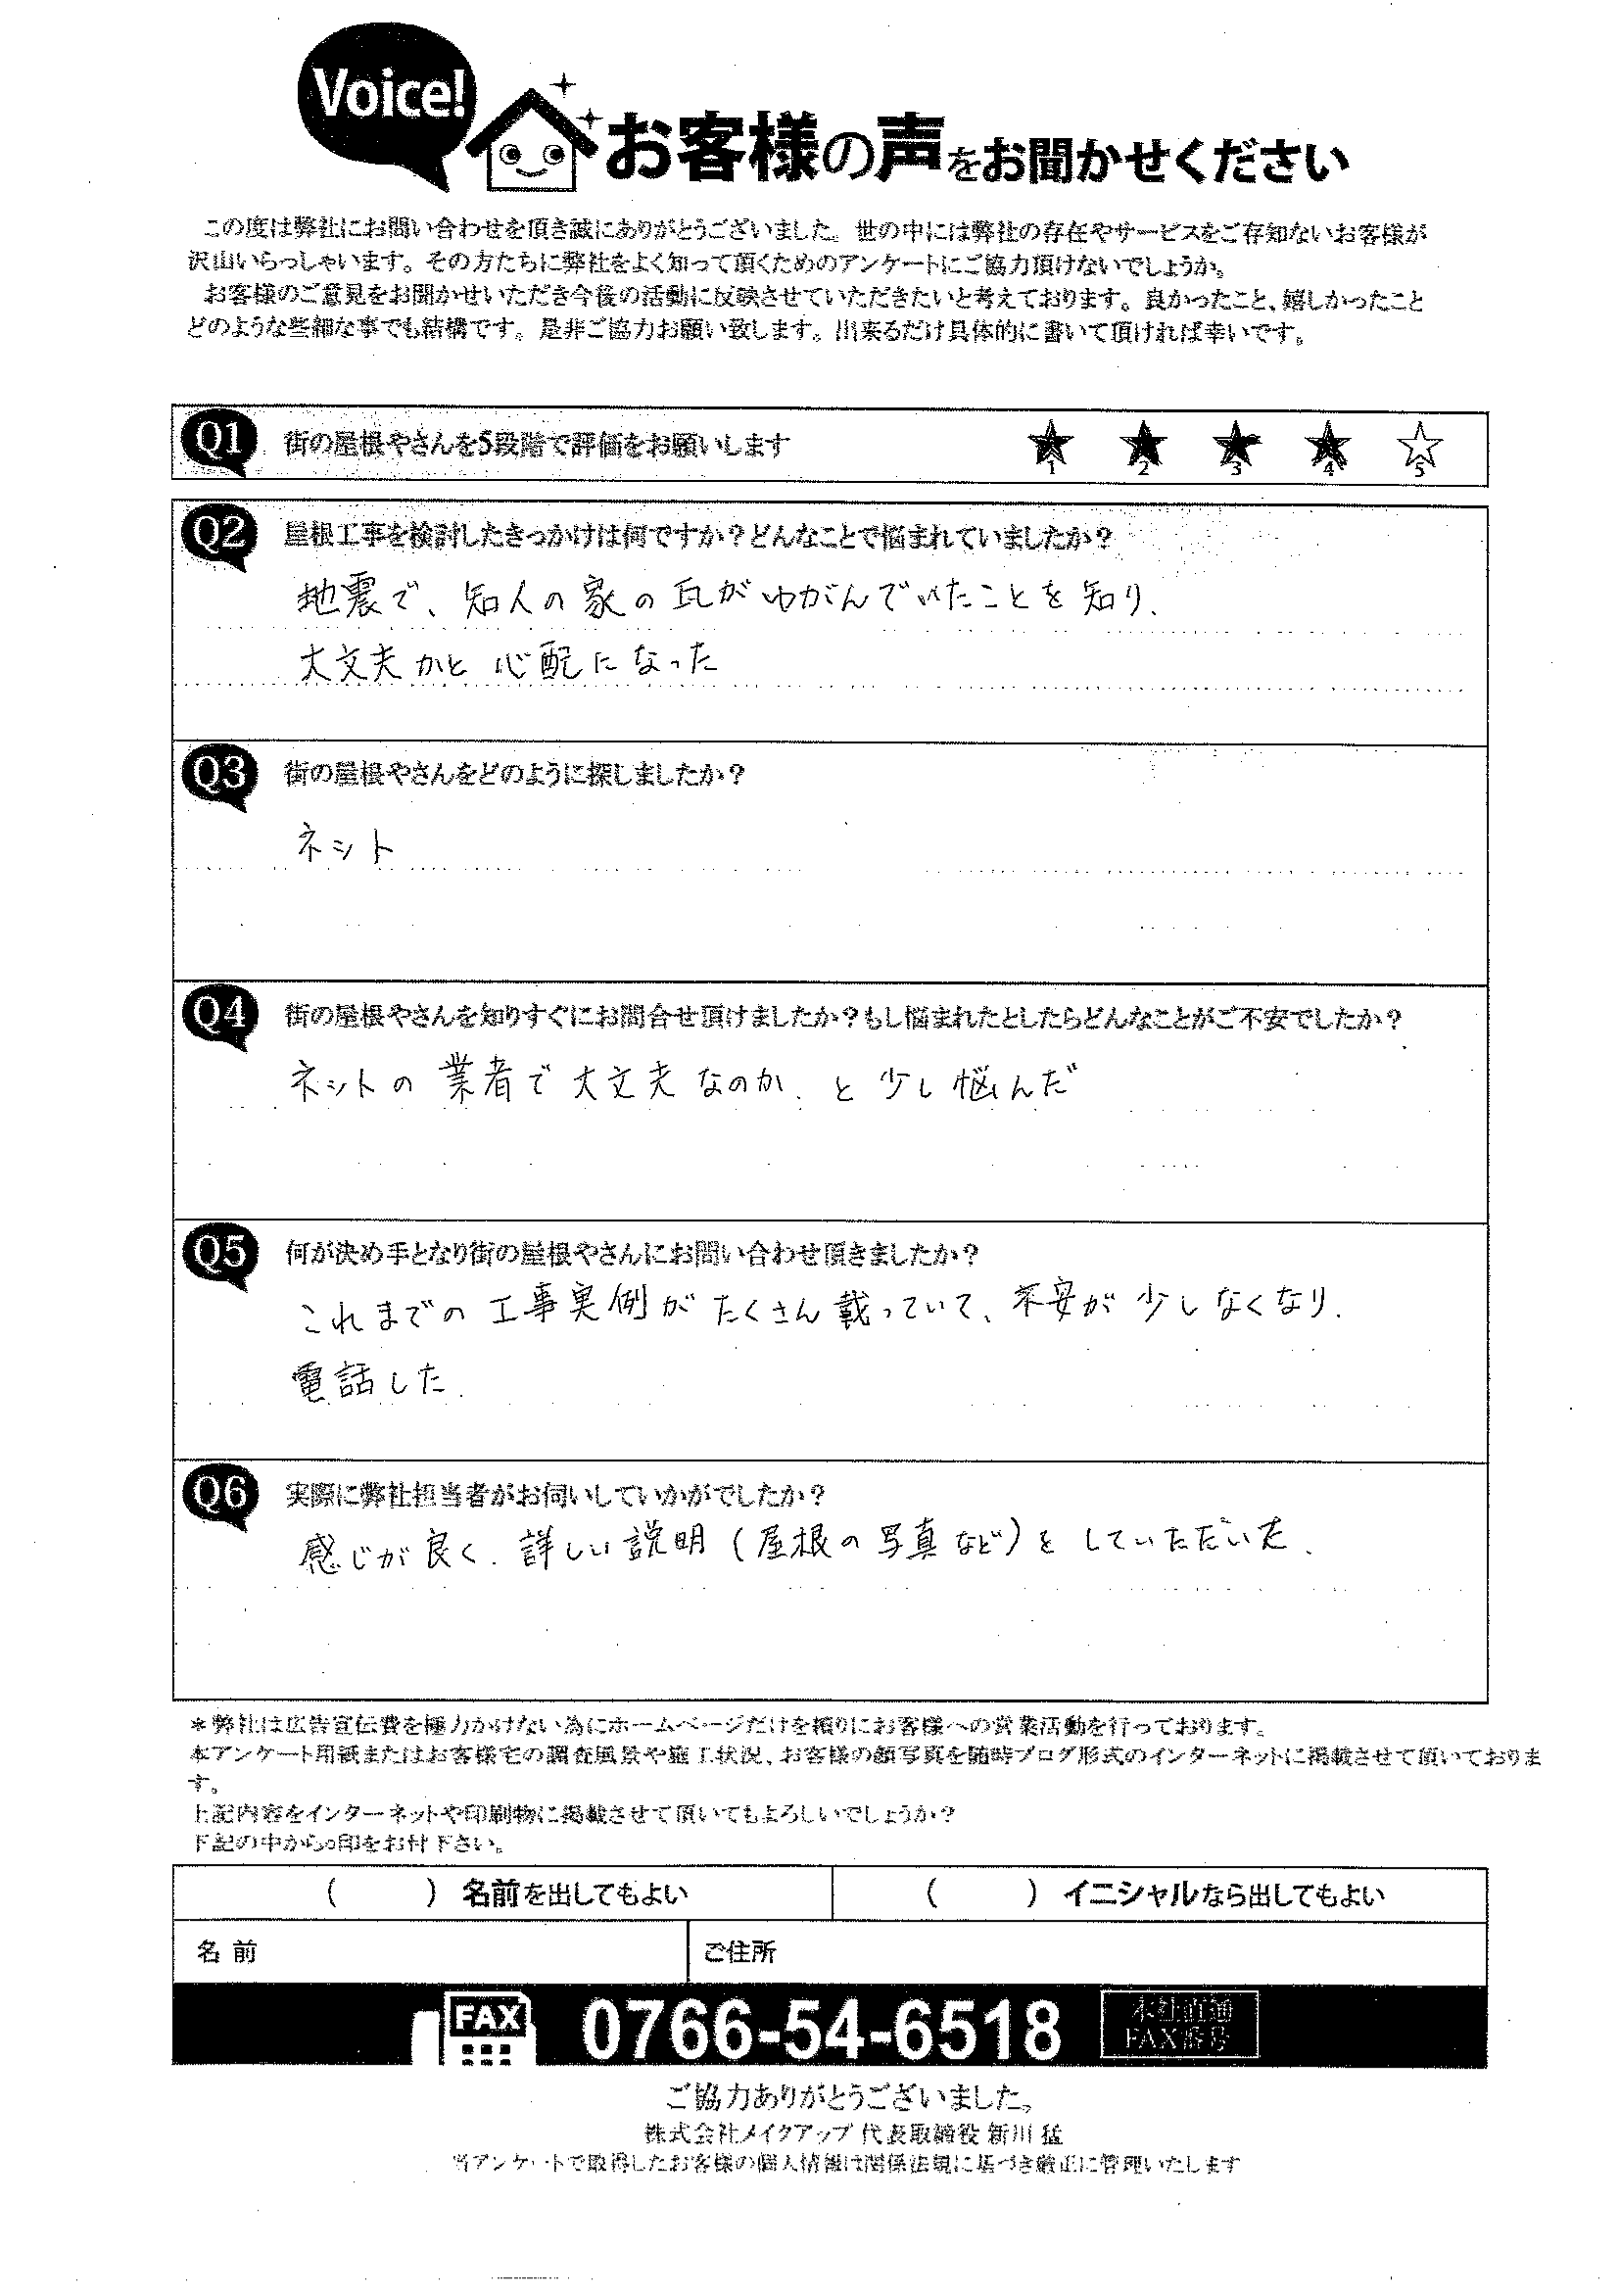 Voice!
お客様の声をお聞かせください
この度は弊社にお問い合わせを頂き誠にありがとうございました。世の中には弊社の存在やサービスをご存知ないお客様が
沢山いらっしゃいます。その方たちに弊社をよく知って頂くためのアンケートにご協力頂けないでしょうか。
お客様のご意見をお聞かせいただき今後の活動に反映させていただきたいと考えております。良かったこと、嬉しかったこと
どのような些細な事でも結構です。是非ご協力お願い致します。出来るだけ具体的に書いて頂ければ幸いです。
Q1 街の屋根やさんを5段階で評価をお願いします
1 2 3 4 5
Q2 屋根工事を検討したきっかけは何ですか？どんなことで悩まれていましたか？
地震で、知人の家の瓦がゆがんでいたことを知り、
大丈夫かと心配になった
Q3 街の屋根やさんをどのように探しましたか？
ネット
Q4 街の屋根やさんを知りすぐにお問合せ頂けましたか？もし悩まれたとしたらどんなことがご不安でしたか？
ネットの業者で大丈夫なのか、と少し悩んだ
Q5 何が決め手となり街の屋根やさんにお問い合わせ頂きましたか？
これまでの工事実例がたくさん載っていて、不安が少しなくなり、
電話した。
Q6 実際に弊社担当者がお伺いしていかがでしたか？
感じが良く、詳しい説明（屋根の写真など）をしていただいた。
＊弊社は広告宣伝費を極力かけない為にホームページだけを頼りにお客様への営業活動を行っております。
本アンケート用紙またはお客様宅の調査風景や施工状況、お客様の顔写真を随時ブログ形式のインターネットに掲載させて頂いておりま
す。
上記内容をインターネットや印刷物に掲載させて頂いてもよろしいでしょうか？
下記の中から○印をお付下さい。
（　　　）名前を出してもよい （　　　）イニシャルなら出してもよい
名 前 ご住所
FAX 0766-54-6518 本社直通
FAX番号
ご協力ありがとうございました。
株式会社メイクアップ 代表取締役 新川 猛
当アンケートで取得したお客様の個人情報は関係法規に基づき厳正に管理いたします